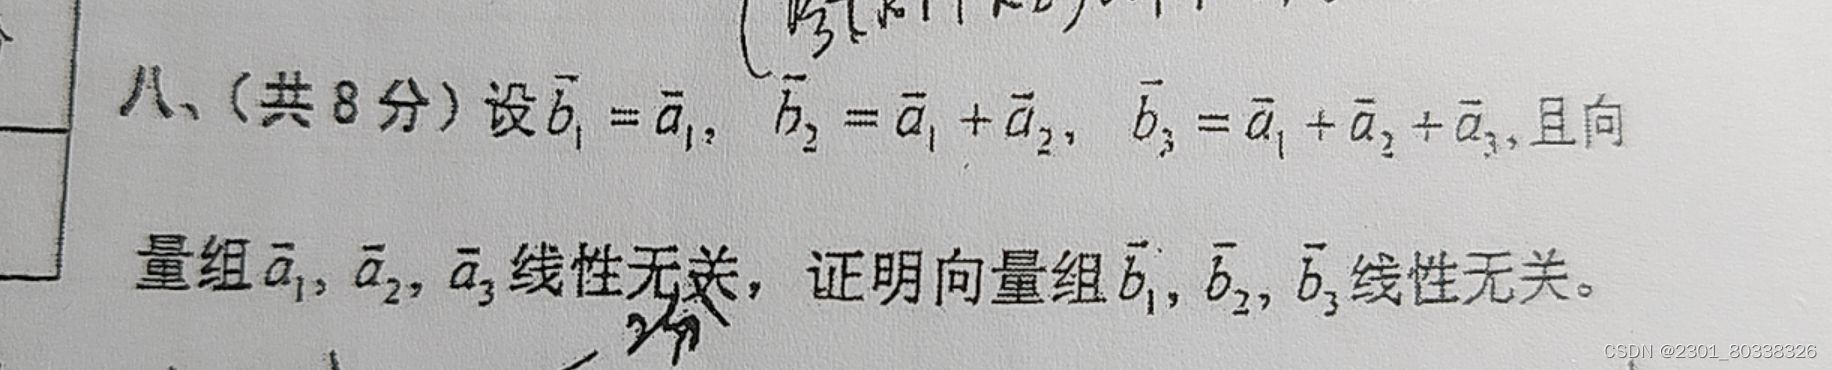 八、(共8分)设b̄₁ = ā₁, b̄₂ = ā₁ + ā₂, b̄₃ = ā₁ + ā₂ + ā₃, 且向
量组ā₁, ā₂, ā₃线性无关，证明向量组b̄₁, b̄₂, b̄₃线性无关。
CSDN @2301_80338326